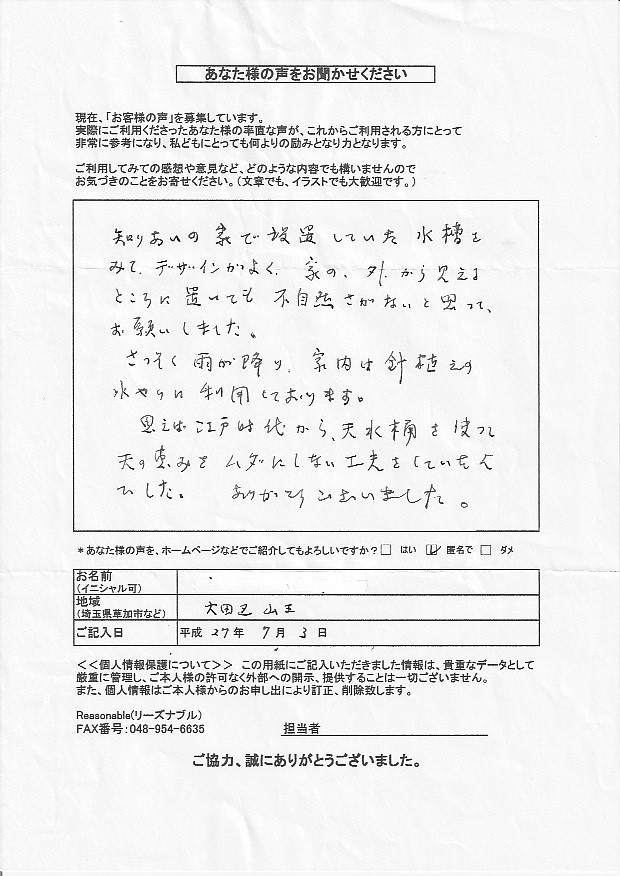 あなた様の声をお聞かせください
現在、「お客様の声」を募集しています。
実際にご利用くださったあなた様の率直な声が、これからご利用される方にとって
非常に参考になり、私どもにとっても何よりの励みとなり力となります。
ご利用してみての感想や意見など、どのような内容でも構いませんので
お気づきのことをお寄せください。(文章でも、イラストでも大歓迎です。)
知りあいの家で設置していた水槽を
みて、デザインがよく、家の、外から見える
ところに置いても不自然さがないと思って、
お願いしました。
さっそく雨が降り、家内は鉢植えの
水やりに利用しております。
思えば江戸時代から、天水桶を使って
天の恵みをムダにしない工夫をしていたん
でした。 ありがとうございました。
*あなた様の声を、ホームページなどでご紹介してもよろしいですか?□ はい ☑ 匿名で □ ダメ
お名前
(イニシャル可)
地域
(埼玉県草加市など) 大田区山王
ご記入日 平成 27年 7月 3日
<<個人情報保護について>> この用紙にご記入いただきました情報は、貴重なデータとして
厳重に管理し、ご本人様の許可なく外部への開示、提供することは一切ございません。
また、個人情報はご本人様からのお申し出により訂正、削除致します。
Reasonable(リーズナブル)
FAX番号:048-954-6635 担当者
ご協力、誠にありがとうございました。